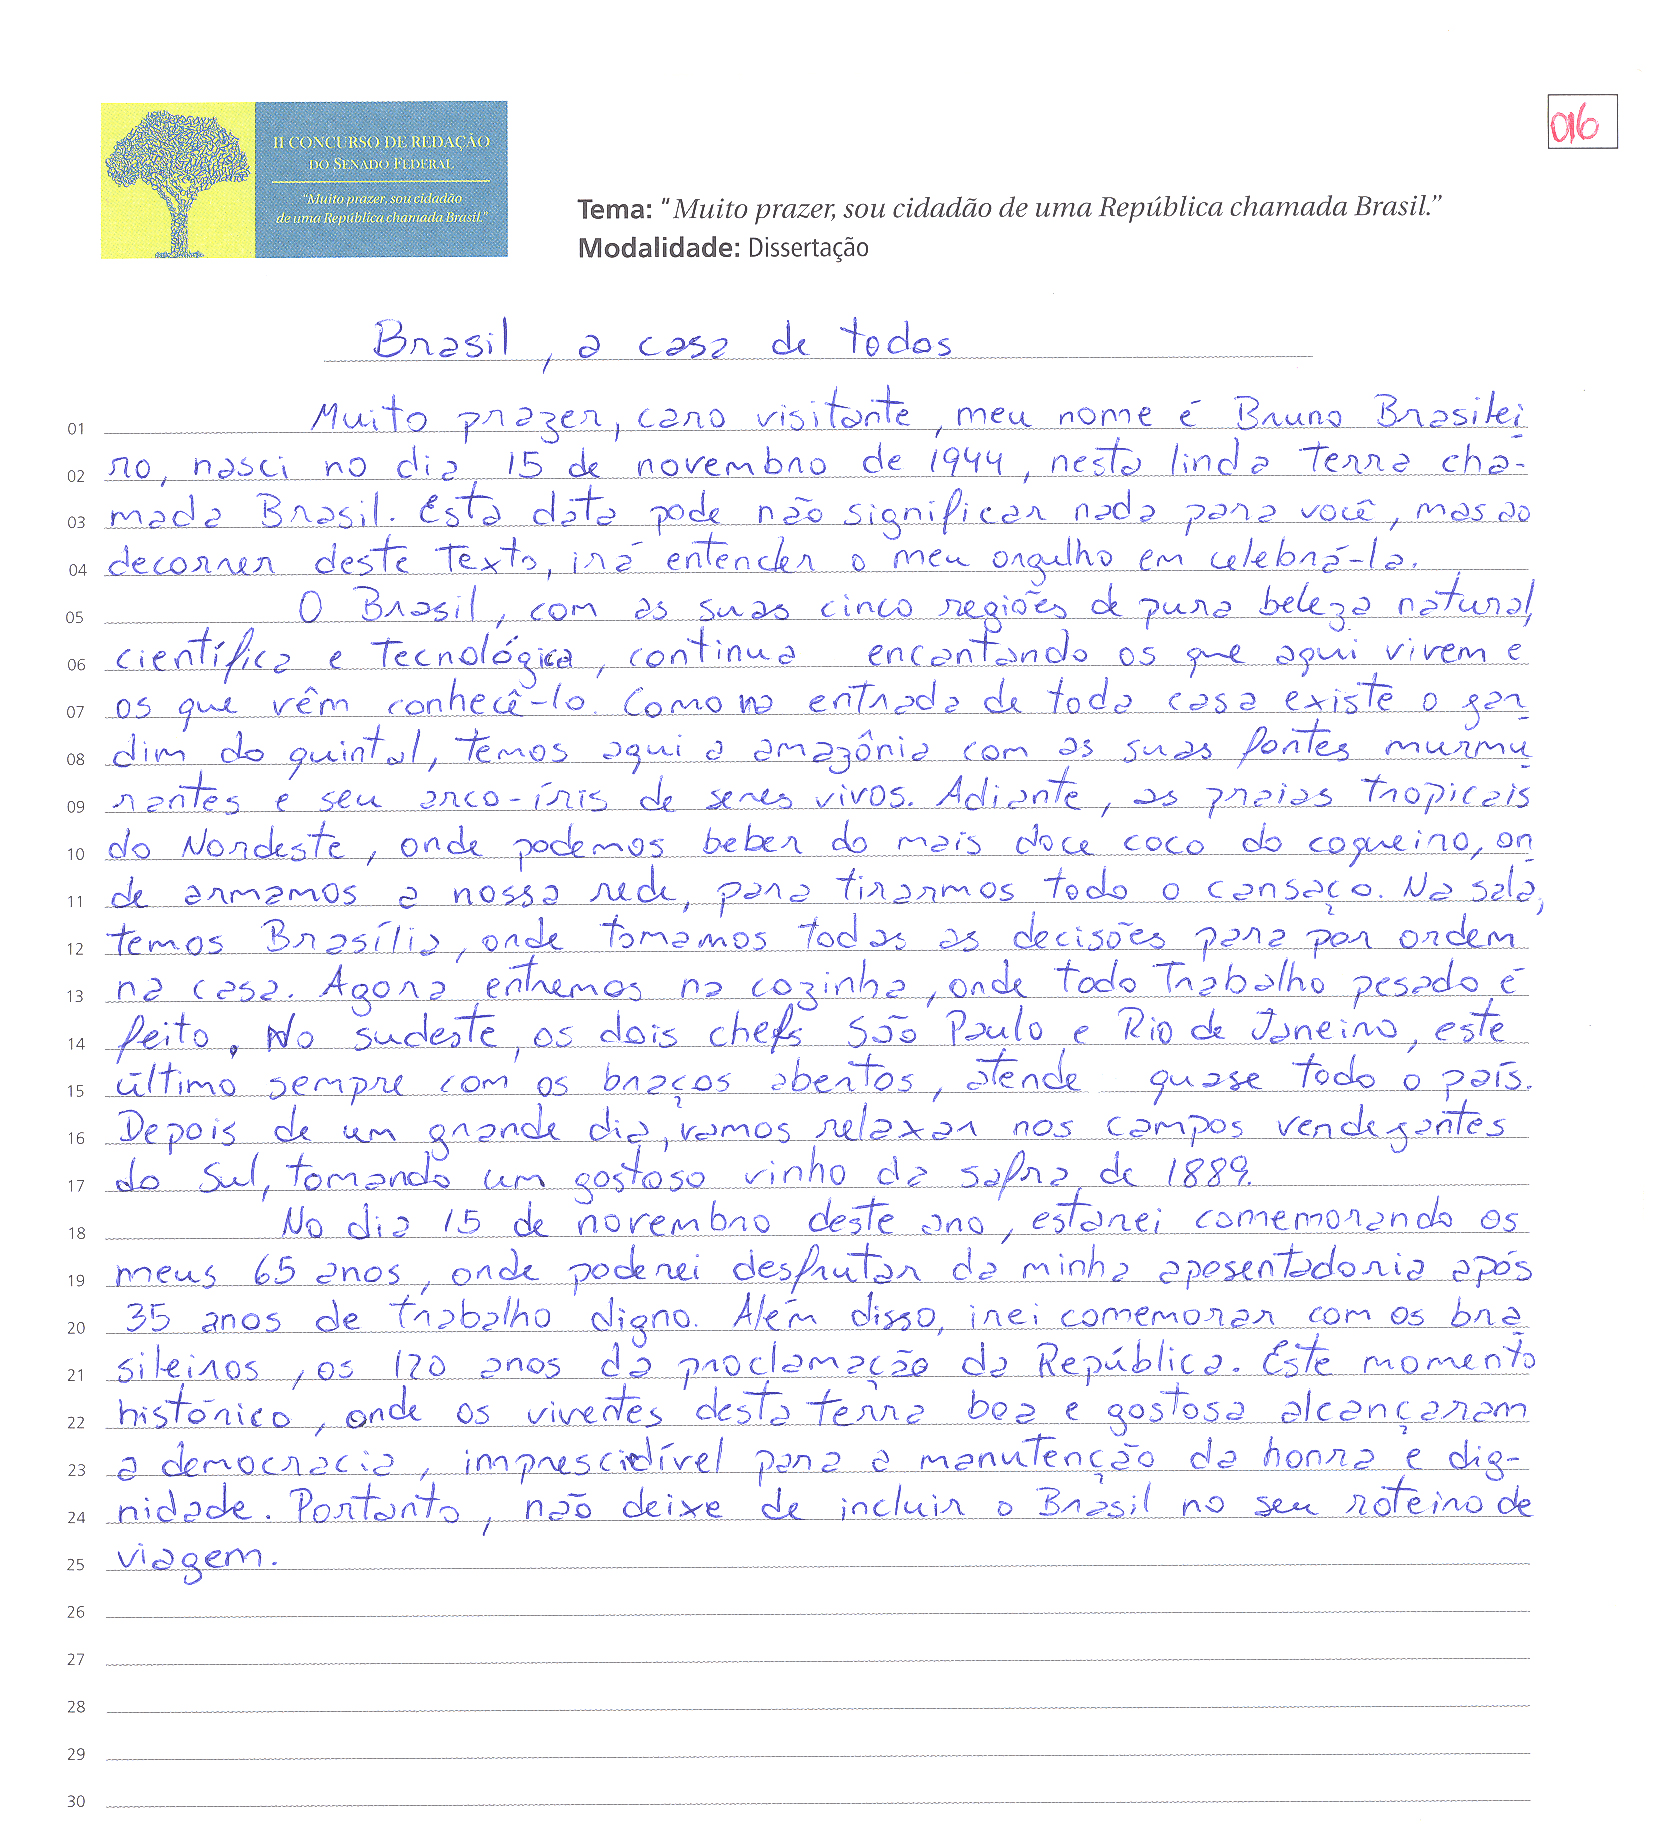 016
II CONCURSO DE REDAÇÃO
DO SENADO FEDERAL
"Muito prazer, sou cidadão
de uma República chamada Brasil."
Tema: "Muito prazer, sou cidadão de uma República chamada Brasil."
Modalidade: Dissertação
Brasil, a casa de todos
01 Muito prazer, caro visitante, meu nome é Bruno Brasilei
02 ro, nasci no dia 15 de novembro de 1944, nesta linda terra cha-
03 mada Brasil. Esta data pode não significar nada para você, mas ao
04 decorrer deste texto, irá entender o meu orgulho em celebrá-la.
05 O Brasil, com as suas cinco regiões de pura beleza natural,
06 científica e tecnológica, continua encantando os que aqui vivem e
07 os que vêm conhecê-lo. Como na entrada de toda casa existe o gar
08 dim do quintal, temos aqui a amazônia com as suas fontes murmu
09 rantes e seu arco-íris de seres vivos. Adiante, as praias tropicais
10 do Nordeste, onde podemos beber do mais doce coco do coqueiro, on
11 de armamos a nossa rede, para tirarmos todo o cansaço. Na sala,
12 temos Brasília, onde tomamos todas as decisões para por ordem
13 na casa. Agora entremos na cozinha, onde todo trabalho pesado é
14 feito. No sudeste, os dois chefs São Paulo e Rio de Janeiro, este
15 último sempre com os braços abertos, atende quase todo o país.
16 Depois de um grande dia, vamos relaxar nos campos verdegantes
17 do Sul, tomando um gostoso vinho da safra de 1889.
18 No dia 15 de novembro deste ano, estarei comemorando os
19 meus 65 anos, onde poderei desfrutar da minha aposentadoria após
20 35 anos de trabalho digno. Além disso, irei comemorar com os bra
21 sileiros, os 120 anos da proclamação da República. Este momento
22 histórico, onde os viventes desta terra boa e gostosa alcançaram
23 a democracia, imprescidível para a manutenção da honra e dig-
24 nidade. Portanto, não deixe de incluir o Brasil no seu roteiro de
25 viagem.
26
27
28
29
30